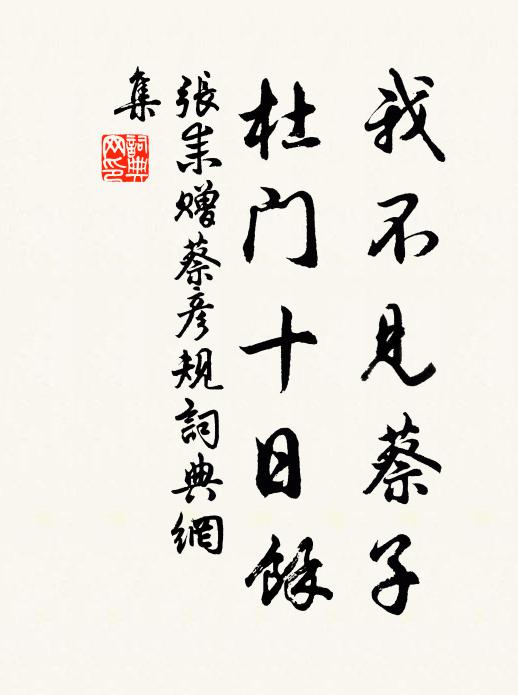 我不見蔡子
杜门十日餘
張耒赠蔡彦規詞典網
集
詞典
网印